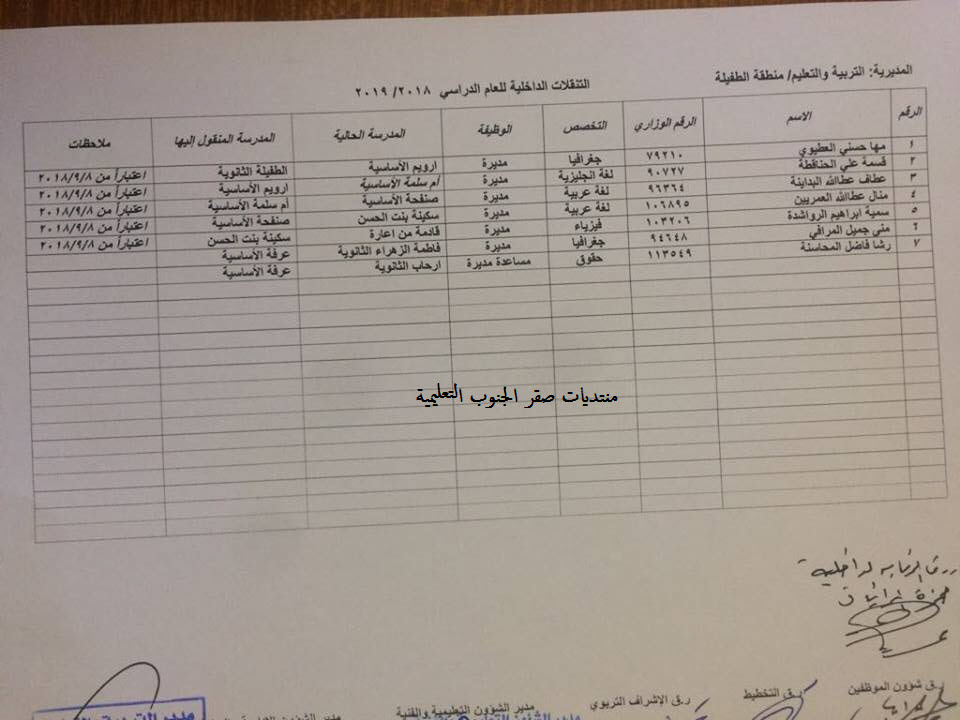 المديرية: التربية والتعليم/ منطقة الطفيلة
التنقلات الداخلية للعام الدراسي ٢٠١٨/ ٢٠١٩
الرقم الاسم الرقم الوزاري التخصص الوظيفة المدرسة الحالية المدرسة المنقول إليها ملاحظات
١ مها حسني العطيوي ٧٩٢١٠ جغرافيا مديرة ارويم الأساسية الطفيلة الثانوية اعتباراً من ٢٠١٨/٩/٨
٢ قسمة علي الحناقطة ٩٠٧٢٧ لغة انجليزية مديرة أم سلمة الأساسية ارويم الأساسية اعتباراً من ٢٠١٨/٩/٨
٣ عطاف عطاالله البداينة ٩٦٣٦٤ لغة عربية مديرة صنفحة الأساسية أم سلمة الأساسية اعتباراً من ٢٠١٨/٩/٨
٤ منال عطاالله العمريين ١٠٦٨٩٥ لغة عربية مديرة سكينة بنت الحسن صنفحة الأساسية اعتباراً من ٢٠١٨/٩/٨
٥ سمية ابراهيم الرواشدة ١٠٣٢٠٦ فيزياء مديرة قادمة من اعارة سكينة بنت الحسن اعتباراً من ٢٠١٨/٩/٨
٦ منى جميل المرافي ٩٤٦٤٨ جغرافيا مديرة فاطمة الزهراء الثانوية عرفة الأساسية
٧ رشا فاضل المحاسنة ١١٣٥٤٩ حقوق مساعدة مديرة ارحاب الثانوية عرفة الأساسية
منتديات صقر الجنوب التعليمية
ر.ق شؤون الموظفين ر.ق التخطيط ر.ق الإشراف التربوي مدير الشؤون التعليمية والفنية مدير الشؤون